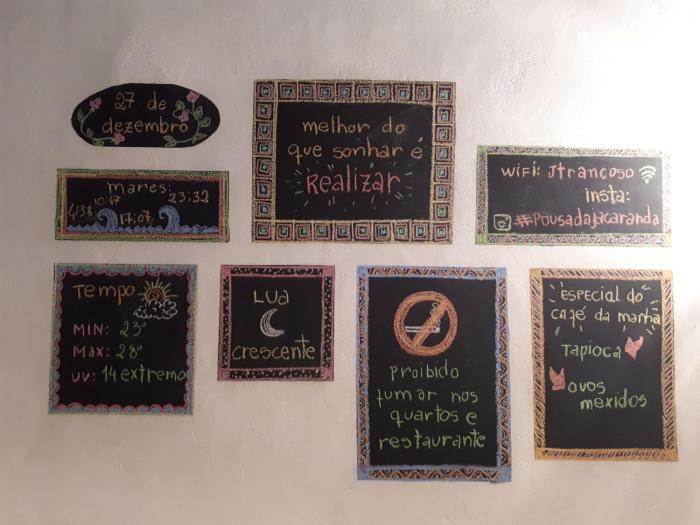 27 de
dezembro
melhor do
que sonhar é
Realizar
wifi: Jtrancoso
insta:
#PousadaJacaranda
mares:
4:38 10:47 17:07 23:32
Tempo
MIN: 23°
Max: 28°
UV: 14 extremo
Lua
crescente
proibido
fumar nos
quartos e
restaurante
especial do
café da manhã
Tapioca
ovos
mexidos